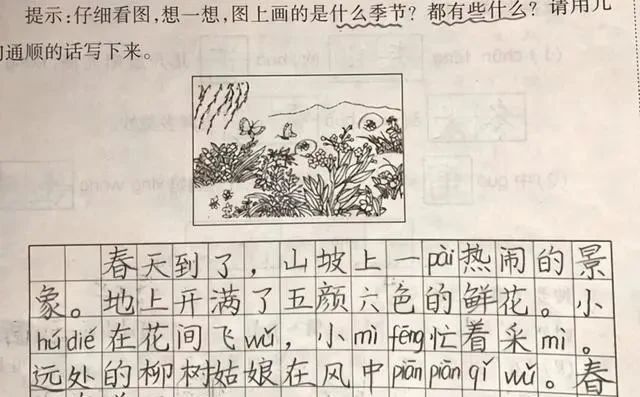 提示:仔细看图,想一想,图上画的是什么季节?都有些什么?请用几
句通顺的话写下来。
春天到了,山坡上一pài热闹的景
象。地上开满了五颜六色的鲜花。小
húdié在花间飞wǔ,小mì fēng忙着采mì。
远处的柳树姑娘在风中piān piān qǐ wǔ。春